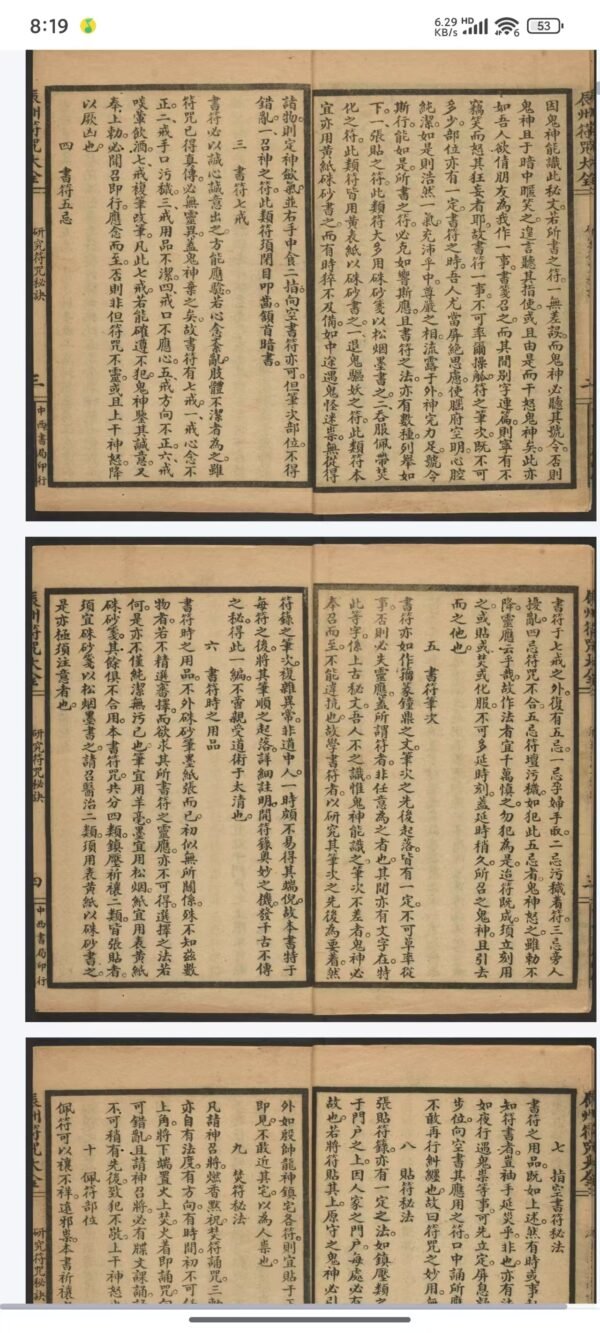 8:19
6.29 KB/s
HD
6
53
因鬼神能識此秘文若所書之符一無差誤而鬼神必聽其號令否則
鬼神且于暗中匿笑之遑言聽其指使或且由是而干怒鬼神矣此亦
如吾人欲倩朋友為我作一事書箋召之而其間別字連篇則寧有不
竊笑而怒其狂妄者耶故書符一事不可率爾操觚符之筆次既不可
多少部位亦有一定書符之時吾人尤當屏絕思慮使腦府空明心腔
純潔如是則浩然一氣充沛乎中尊嚴之相流露于外神完力足號令
斯行能如是所書之符必克如響斯應且書符之法亦有數種列舉如
下一張貼之符此類符大多用硃砂箋以松烟墨書之二吞服佩帶焚
化之符此類符皆用黃表紙以硃砂書之一退鬼驅妖之符此類符本
宜亦用黃紙硃砂書之而有時猝不及備如中途遇鬼怪迷祟無從得
諸物則定神斂氣並右手中食二指向空書符亦可但筆次部位不得
錯亂一召神之符此類符須閉目叩齒頷首暗書
三 書符七戒
書符必以誠心誠意出之方能應驗若心念紊亂肢體不潔者為之雖
符咒已得真傳必無靈異蓋鬼神棄之矣故書符有七戒一戒心念不
正二戒手口污穢三戒用品不潔四戒口不應心五戒方向不正六戒
啖葷飲酒七戒複筆改筆凡此七戒若能確遵不犯鬼神鑒其誠意又
奉上勅必聞召即行應念而至否則非但符咒不靈或且上干神怒降
以厥凶也
四 書符五忌
辰州符咒大全
研究符咒秘訣
三
中西書局印行
書符于七戒之外復有五忌一忌孕婦手取二忌污穢着符三忌旁人
擾亂四忌符咒不合五忌符壇污穢如犯此五忌者鬼神怒之雖勅不
降靈應云乎哉故作法者宜千萬慎之勿犯為是迨符既成須立刻用
之或貼或焚或化服不可多延時刻蓋延時稍久所召之鬼神且引去
而之他也
五 書符筆次
書符亦如作擂篆鐘鼎之文筆次之先後起落皆有一定不可草率從
事否則必失靈應蓋所謂符者非任意為之者也其間亦有文字在特
此等字係上古秘文吾人不之識惟鬼神能識之筆次不差者鬼神必
奉召而至不能違抗也故學書符者以研究其筆次之先後為要着然
符籙之筆次複雜異常非道中人一時頗不易得其端倪故本書特于
每符之後將其筆順之起落詳細註明開符籙奧妙之機發千古不傳
之秘得此一編不啻親受道術于太清也
六 書符時之用品
書符時之用品不外硃砂筆墨紙張而已初似無所關係殊不知茲數
物者若不精選審擇而欲求其所書符之靈應亦不可得選擇之法若
何是亦不僅純潔無污已也筆宜用羊毫墨宜用松烟紙宜用表黃紙
硃砂箋其餘俱不合用本書符咒共分四類鎮壓祈禳二類皆張貼者
須宜硃砂箋以松烟墨書之請召醫治二類須用表黃紙以硃砂書之
是亦極須注意者也
辰州符咒大全
研究符咒秘訣
四
中西書局印行
七 指空書符秘法
書符之用品既如上述然有時或事
知符書者豈袖手延災乎非也亦有法
如夜行遇鬼祟等事可先立定屏息
步位向空書其應用之符口中誦所應
不敢再行糾纏也故曰符咒之妙用
八 貼符秘法
張貼符籙亦有一定之法如鎮壓類
于門戶之上因人家之門戶每處必有
故也若將符貼其上原守之鬼神必引
外如殷帥龍神鎮宅各符則宜貼于
即見不敢近其宅以為人祟也
九 焚符秘法
凡請神召將燃香默祝焚符誦咒三
亦自有法度有方向有時間初不可
上角將下端置火上焚火着即誦咒
可錯亂且請神召將必有牒文課誦
不可稍有先後致犯不敬上干神怒
十 佩符部位
佩符可以禳不祥遠邪祟本書祈禳
辰州符咒大全
研究符咒秘訣